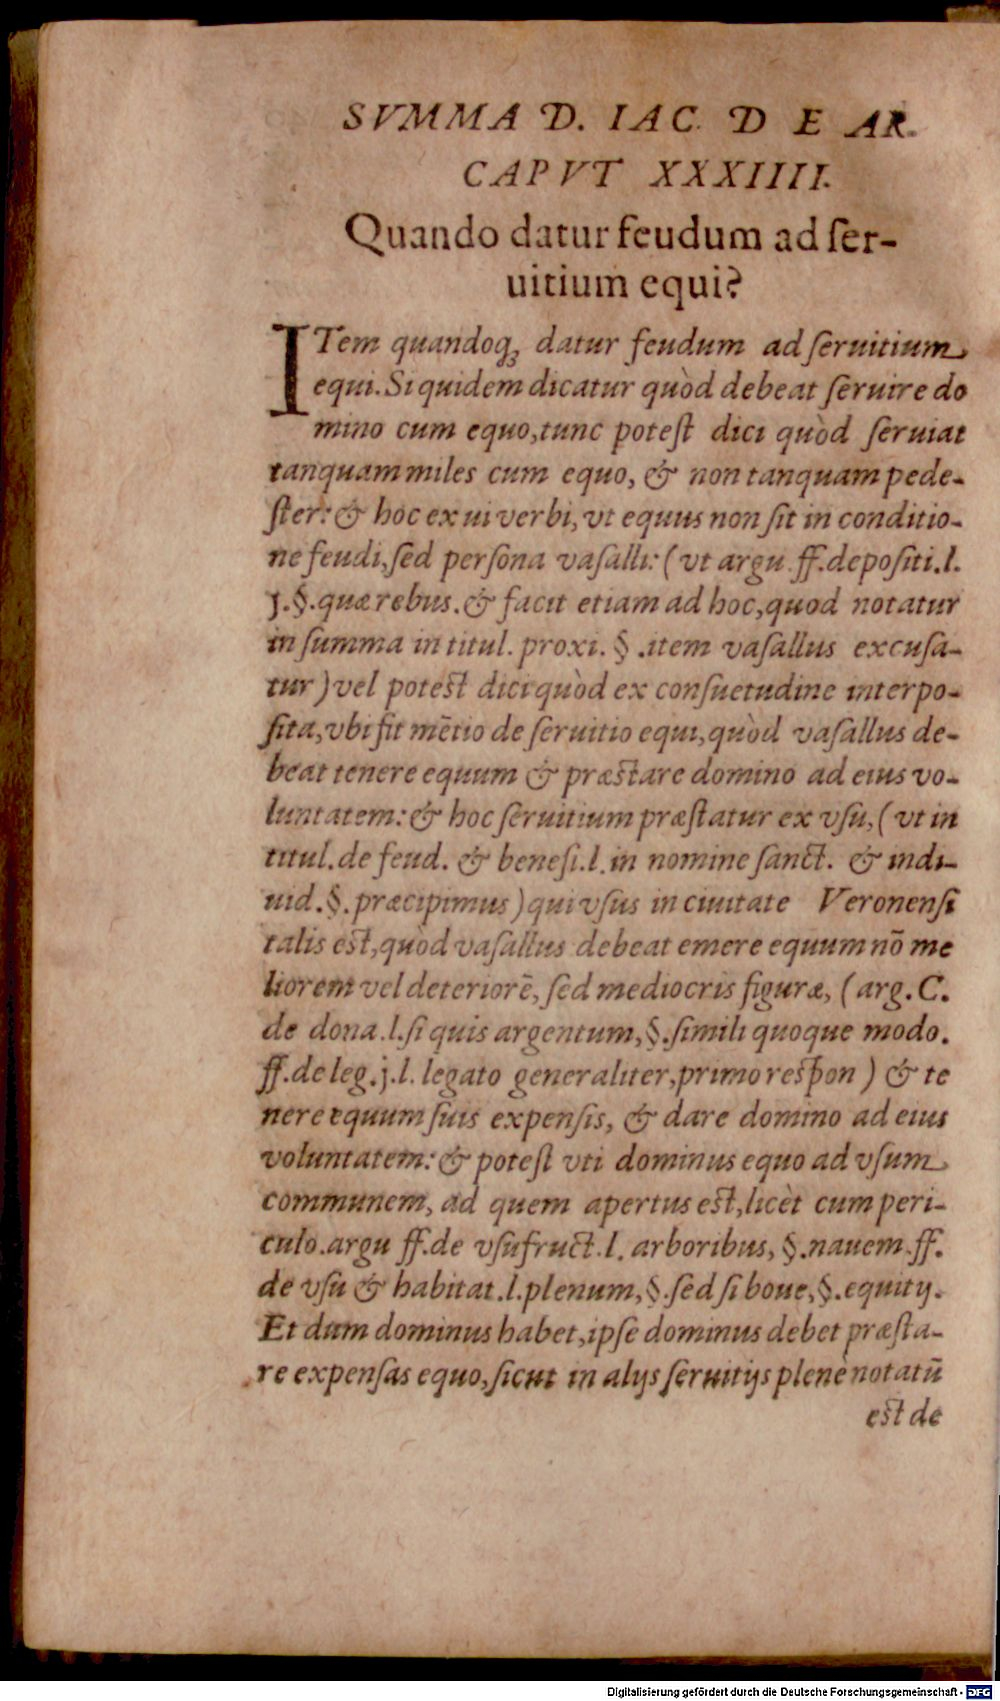 SVMMA D. IAC. D E AR.
CAPVT XXXIIII.
Quando datur feudum ad ſer-
uitium equi?
ITem quandoqꝫ datur feudum ad ſeruitium
equi. Si quidem dicatur quòd debeat ſeruire do
mino cum equo, tunc poteſt dici quòd ſeruiat
tanquam miles cum equo, & non tanquam pede-
ſter: & hoc ex ui verbi, vt equus non ſit in conditio-
ne feudi, ſed perſona vaſalli: (vt argu. ff. depoſiti. l.
j. §. quæ rebus. & facit etiam ad hoc, quod notatur
in ſumma in titul. proxi. §. item vaſallus excuſa-
tur) vel poteſt dici quòd ex conſuetudine interpo-
ſita, vbi fit mētio de ſeruitio equi, quòd vaſallus de-
beat tenere equum & præſtare domino ad eius vo-
luntatem: & hoc ſeruitium præſtatur ex vſu, (vt in
titul. de feud. & benefi. l. in nomine ſanct. & indi-
uid. §. præcipimus) qui vſus in ciuitate Veronenſi
talis eſt, quòd vaſallus debeat emere equum nō me
liorem vel deteriorē, ſed mediocris figuræ, (arg. C.
de dona. l. ſi quis argentum, §. ſimili quoque modo.
ff. de leg. j. l. legato generaliter, primo reſpon) & te
nere equum ſuis expenſis, & dare domino ad eius
voluntatem: & poteſt vti dominus equo ad vſum
communem, ad quem apertus eſt, licèt cum peri-
culo. argu ff. de vſufruct. l. arboribus, §. nauem. ff.
de vſu & habitat. l. plenum, §. ſed ſi boue, §. equitij.
Et dum dominus habet, ipſe dominus debet præſta-
re expenſas equo, ſicut in alijs ſeruitijs plenè notatū
eſt de
Digitalisierung gefördert durch die Deutsche Forschungsgemeinschaft - DFG